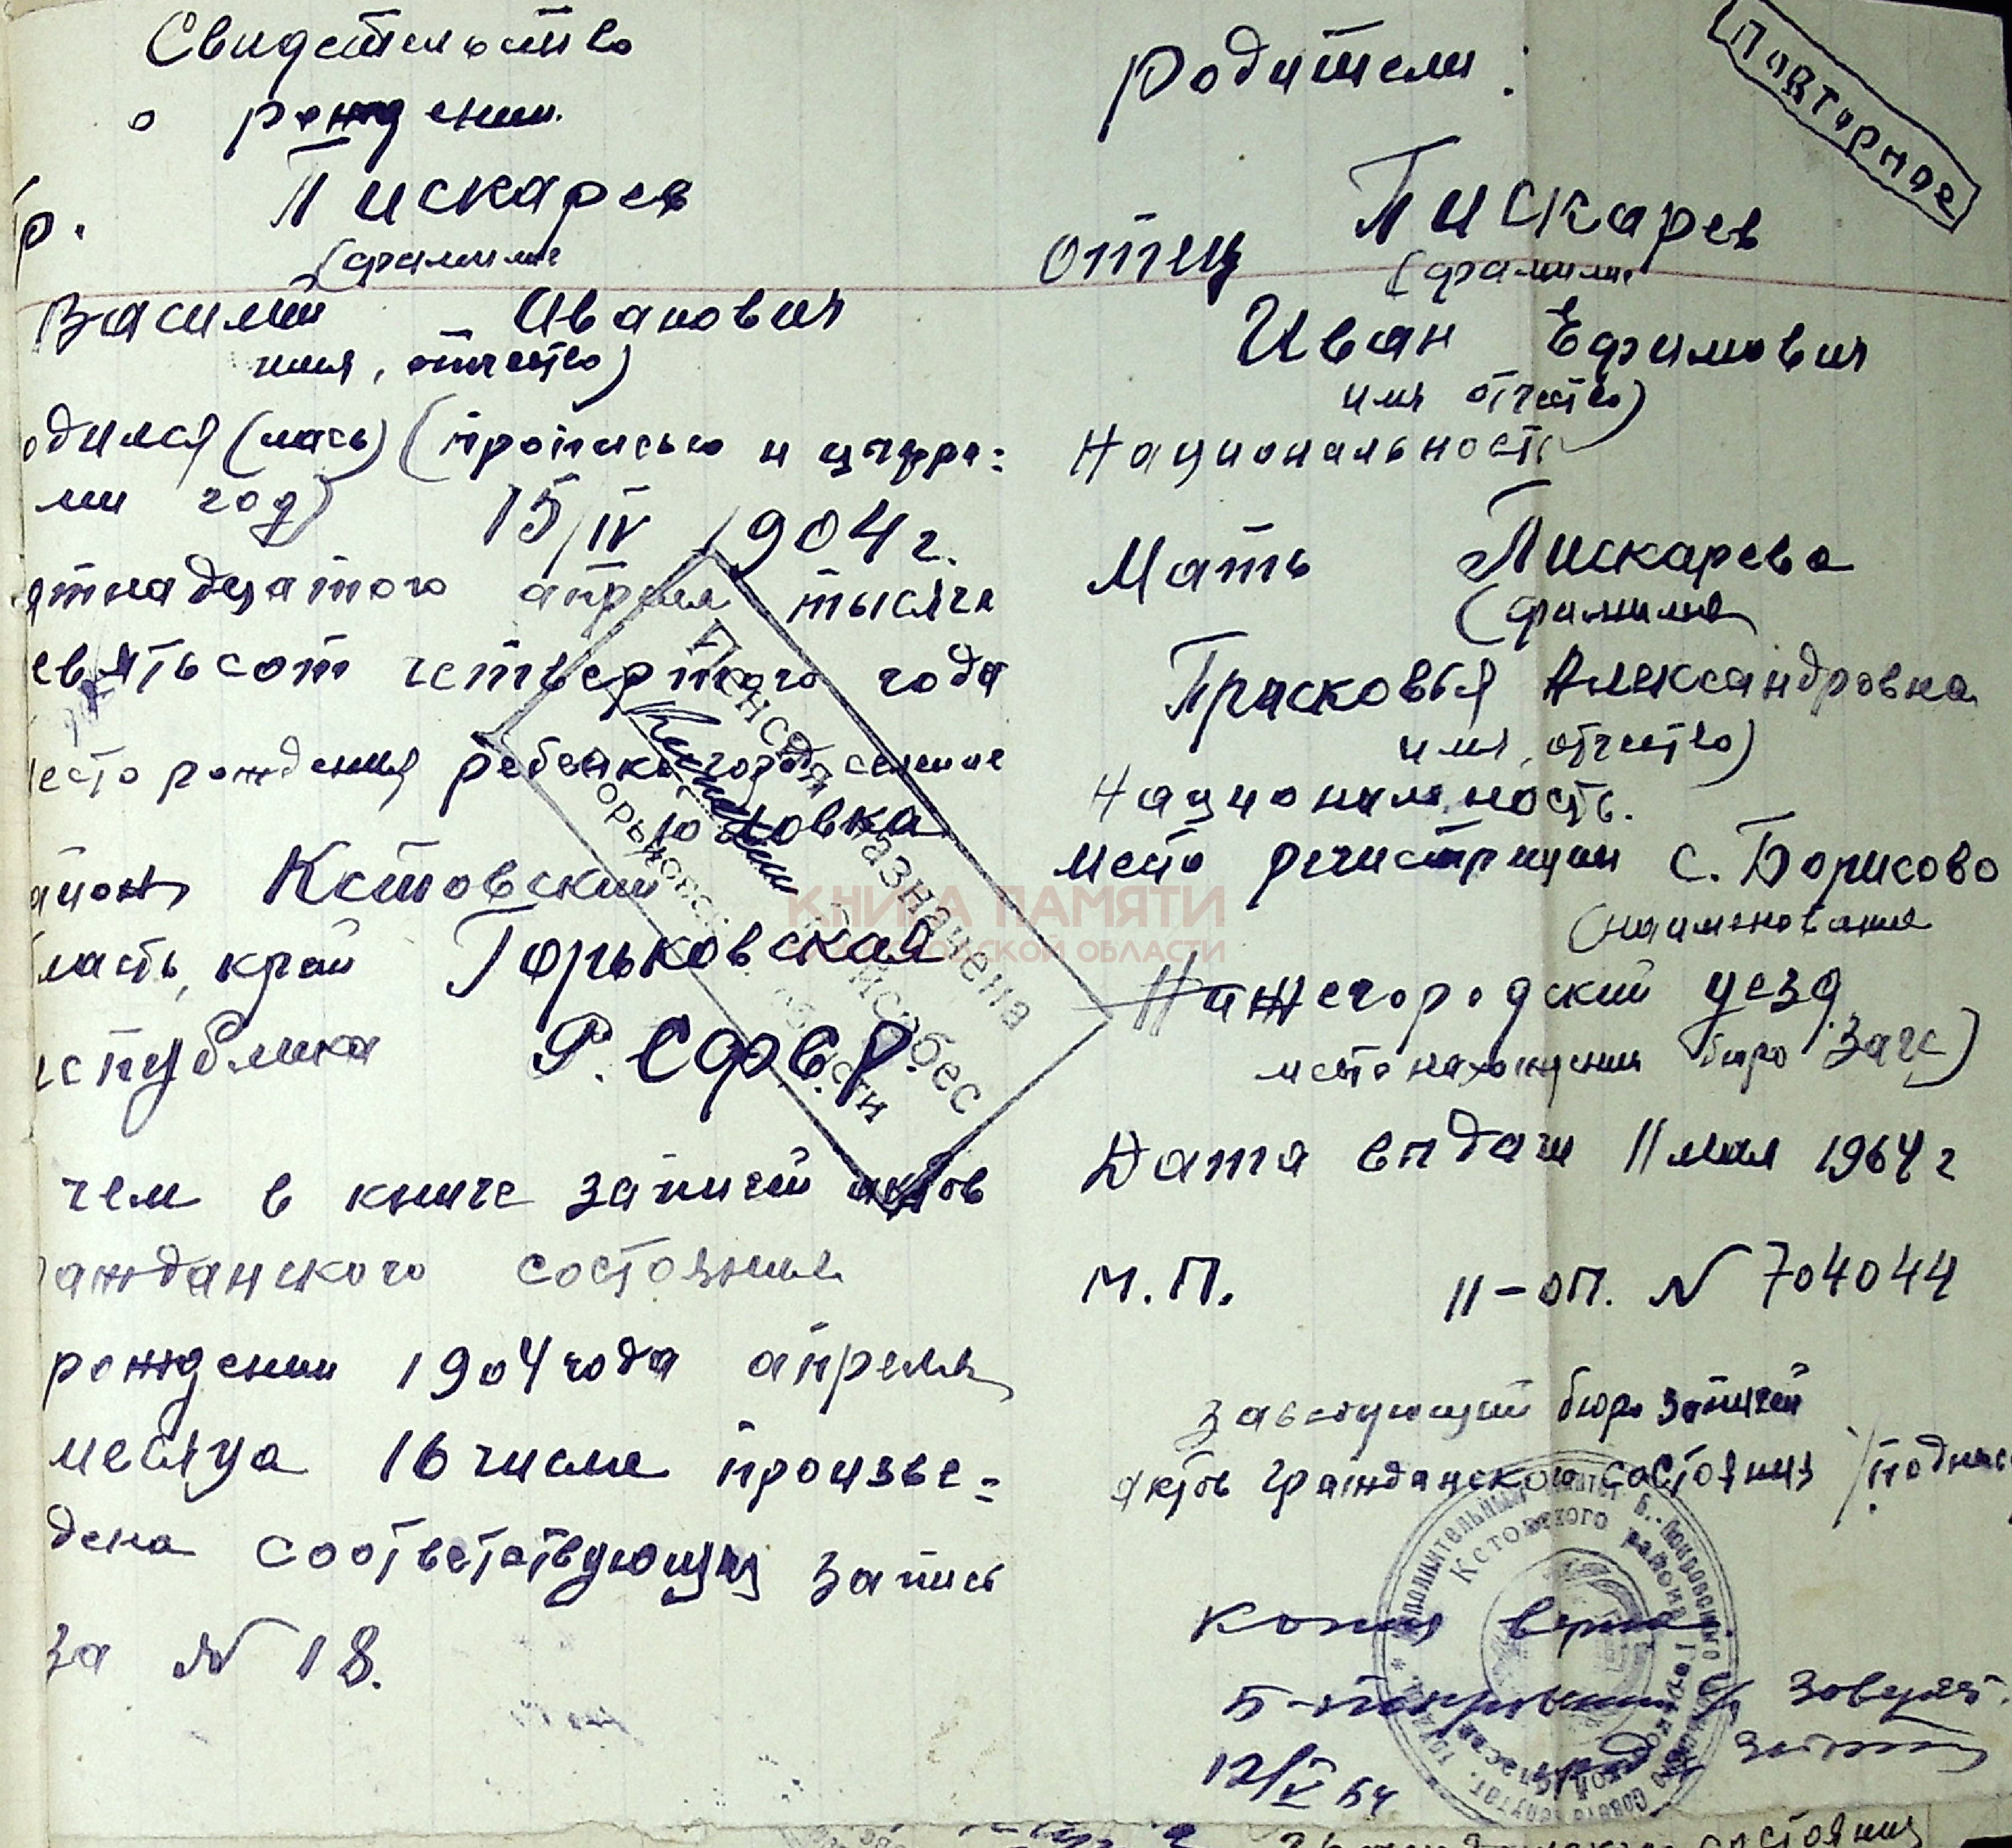 Свидетельство
о рождении
р. Пискарев
(фамилия
Василий Иванович
имя, отчество)
одился (лась) (прописью и цифра=
ми год) 15/IV 1904 г.
ятнадцатого апреля тысяча
евятьсот четвертого года
есто рождения ребенка город селение
айон Кстовский
ласть, край Горьковская
еспублика Р.СФ.С.Р.
чем в книге записей актов
ажданского состояния
рождении 1904 года апреля
месяца 16 числа произве=
дена соответствующая запись
за N 18.
Пенсия назначена
Горьковской области
Повторное
Родители:
отец Пискарев
(фамилия
Иван Ефимович
имя отчество)
Национальность
Мать Пискарева
(фамилия
Прасковья Александровна
имя, отчество)
Национальность.
Место регистрации с. Борисово
(наименование
Нижегородский уезд
местонахождения бюро Загс)
Дата выдачи 11 мая 1964 г
М.П. II-ОП. N 704044
Заведующий бюро записей
актов гражданского состояния /подпись
Копия верна.
12/V 64
Исполнительный комитет Б.-Покровского
Кстовского района Горьковской
КНИГА ПАМЯТИ
НИЖЕГОРОДСКОЙ ОБЛАСТИ